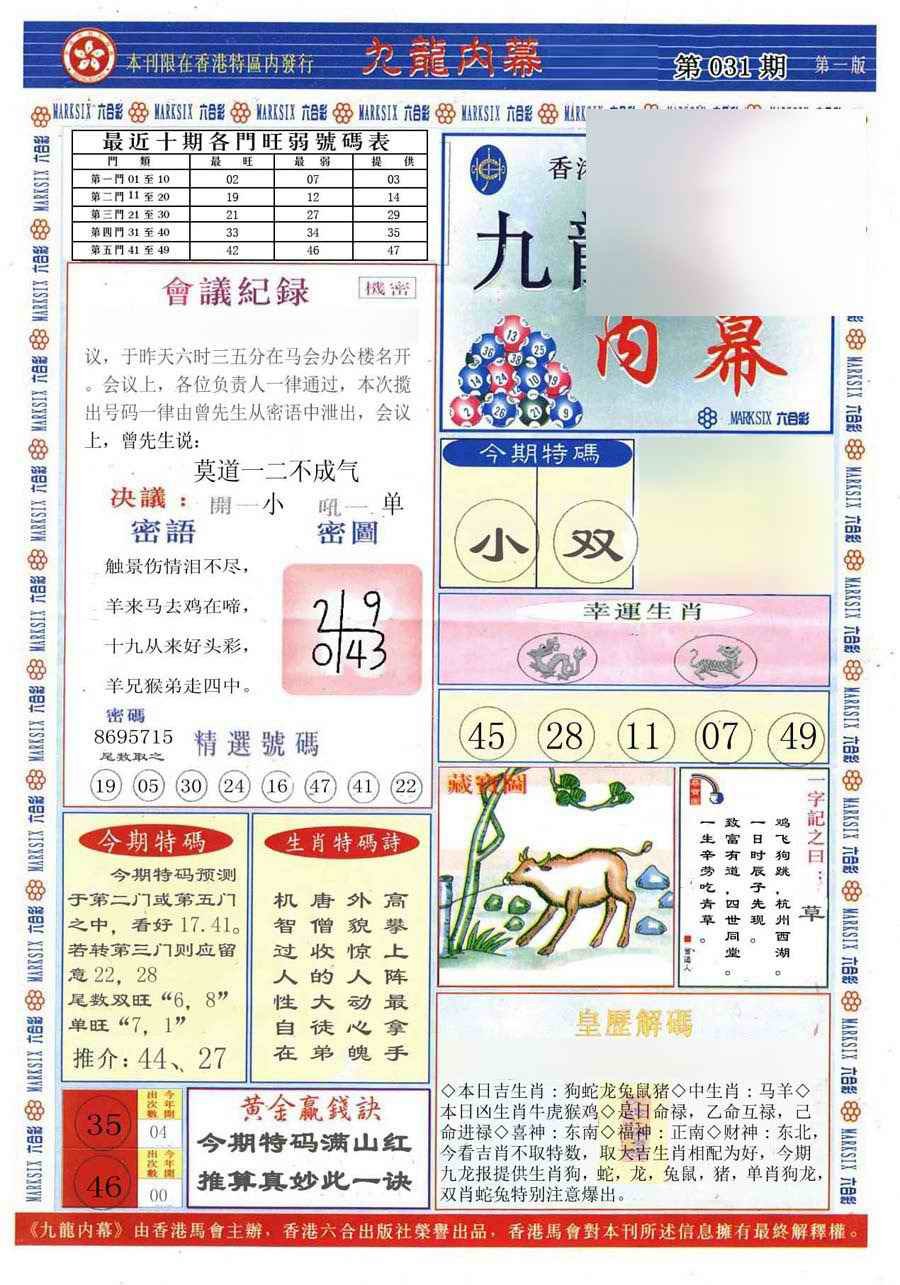 本刊限在香港特區内發行
九龍内幕
第 031 期
第一版
MARKSIX 六合彩
最近十期各門旺弱號碼表
門 類 最 旺 最 弱 提 供
第一門 01 至 10 02 07 03
第二門 11 至 20 19 12 14
第三門 21 至 30 21 27 29
第四門 31 至 40 33 34 35
第五門 41 至 49 42 46 47
會議紀録
機密
议，于昨天六时三五分在马会办公楼名开
。会议上，各位负责人一律通过，本次搅
出号码一律由曾先生从密语中泄出，会议
上，曾先生说:
莫道一二不成气
决議： 開一小 吼一 单
密語
触景伤情泪不尽，
羊来马去鸡在啼，
十九从来好头彩，
羊兄猴弟走四中。
密圖
2 9
0 43
密碼
8695715
尾数取之
精選號碼
19 05 30 24 16 47 41 22
香港
九龍
内幕
13
36 38 25
16 24 10 19
2 26 21 9
MARKSIX 六合彩
今期特碼
小 双
幸運生肖
45 28 11 07 49
藏寶圖
一字記之曰：草
鸡飞狗跳，杭州西湖。
一日时辰子先现。
致富有道，四世同堂。
一生辛劳吃青草。
今期特碼
今期特码预测
于第二门或第五门
之中，看好 17.41。
若转第三门则应留
意 22，28
尾数双旺“6，8”
单旺“7，1”
推介: 44、27
生肖特碼詩
高攀上阵最拿手
外貌惊人动心魄
唐僧收的大徒弟
机智过人性自在
35
今年開出次數
04
46
今年開出次數
00
黄金贏錢訣
今期特码满山红
推算真妙此一诀
皇歷解碼
◇本日吉生肖：狗蛇龙兔鼠猪◇中生肖：马羊◇
本日凶生肖牛虎猴鸡◇是日命禄，乙命互禄，己
命进禄◇喜神：东南◇福神：正南◇财神：东北，
今看吉肖不取特数，取大吉生肖相配为好，今期
九龙报提供生肖狗，蛇，龙，兔鼠，猪，单肖狗龙，
双肖蛇兔特别注意爆出。
《九龍内幕》由香港馬會主辦，香港六合出版社榮譽出品，香港馬會對本刊所述信息擁有最終解釋權。